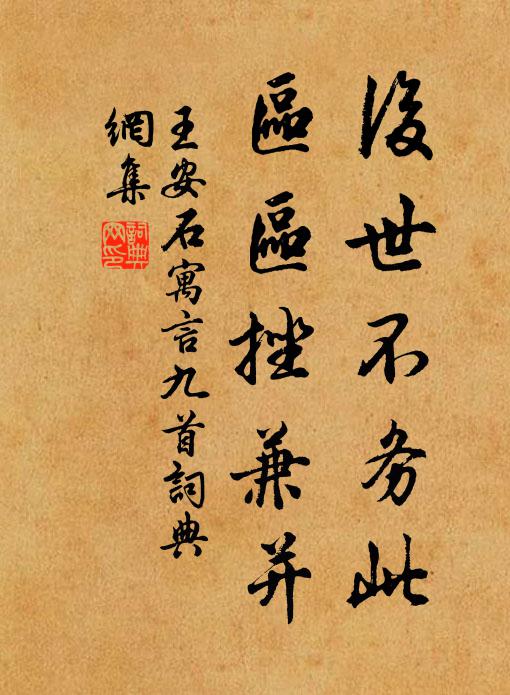 後世不务此
區區挫兼并
王安石寓言九首詞典
網集
詞典網印